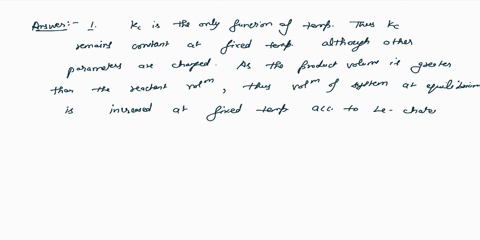 Answer:- 1. Kc is the only function of temp. Thus Kc
remains constant at fixed temp although other
parameters are changed. As the product volume is greater
than the reactant volm, thus volm of system at equilibrium
is increased at fixed temp acc. to Le-chate